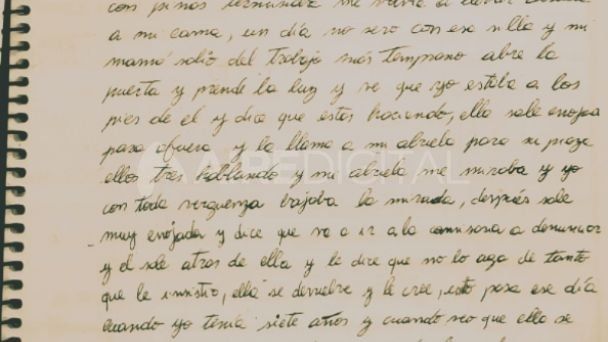 a mi cama, un día no sero con esa silla y mi
mamá salió del trabajo más temprano abre la
puerta y prende la luz y ve que yo estaba a los
pies de el y dice que estas haciendo, ella sale enojada
para afuera y la llama a mi abuela para su pieza
ellos tres hablando y mi abuela me miraba y yo
con toda verguenza bajaba la mirada, después sale
muy enojada y dice que va a ir a la comisaria a denunciar
y el sale atras de ella y le dice que no lo aga de tanto
que le insistio, ella se devuelve y le cree, esto pasa ese día
cuando yo tenía siete años y cuando veo que ella se
AIREDIGITAL